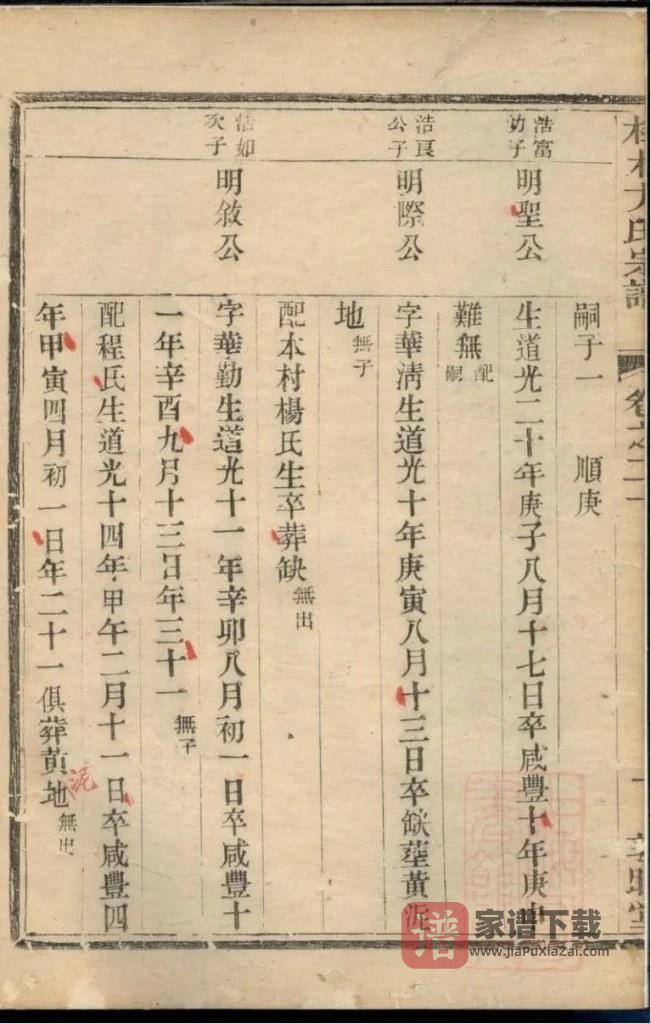 嗣子一 順庚
浩富
幼子
明聖公
生道光二十年庚子八月十七日卒咸豐十年庚申
難無配
嗣
浩良
公子
明際公
字華清生道光十年庚寅八月十三日卒缺塟黃泥
地無子
配本村楊氏生卒葬缺無出
浩如
次子
明敘公
字華勤生道光十一年辛卯八月初一日卒咸豐十
一年辛酉九月十三日年三十一無子
配程氏生道光十四年甲午二月十一日卒咸豐四
年甲寅四月初一日年二十一俱葬黃泥地無出
氏宗譜
卷之二
譜 家谱下载
www.jiaPuXiaZai.com